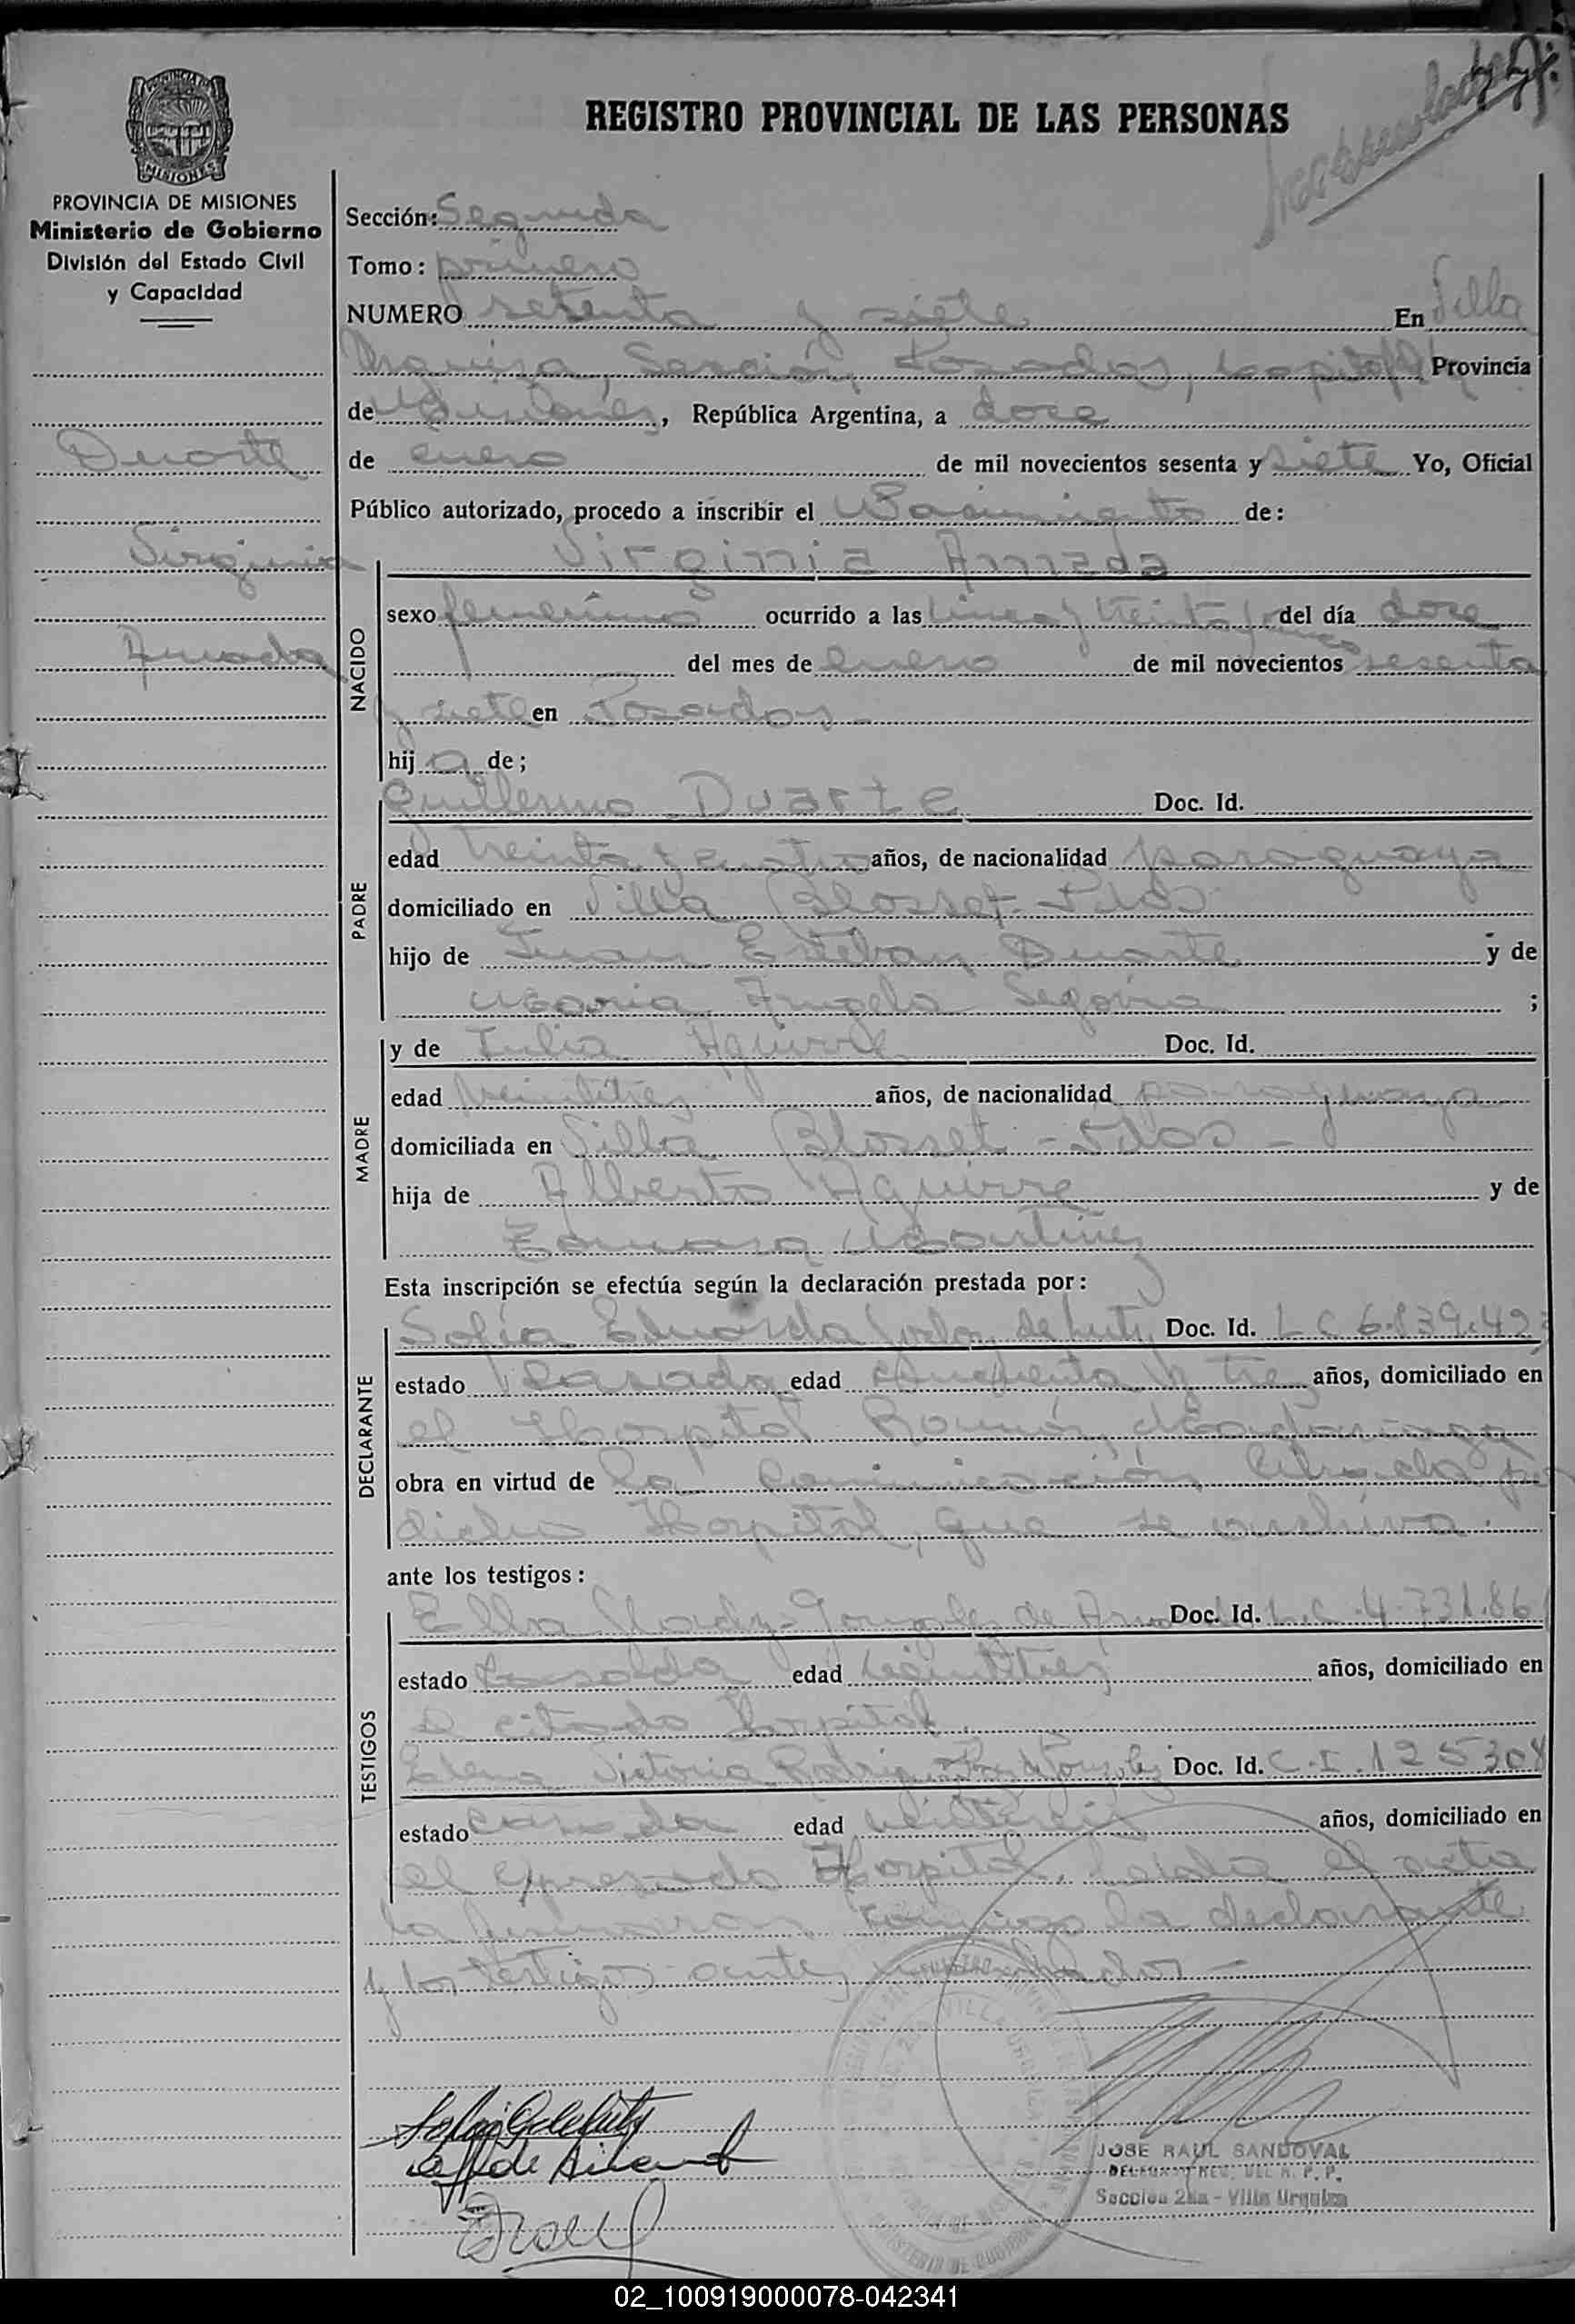 REGISTRO PROVINCIAL DE LAS PERSONAS
MISIONES
PROVINCIA DE MISIONES
Ministerio de Gobierno
División del Estado Civil
y Capacidad
Duarte
Virginia
Amada
Sección: Segunda
Tomo: primero
NUMERO setenta y siete En Villa
Urquiza, Sección, Posadas, Capital, Provincia
de Misiones, República Argentina, a doce
de enero de mil novecientos sesenta y siete Yo, Oficial
Público autorizado, procedo a inscribir el Nacimiento de:
Virginia Amada
NACIDO
sexo femenino ocurrido a las cinco y treinta y cinco del día doce
del mes de enero de mil novecientos sesenta
y siete en Posadas
hija de;
PADRE
Guillermo Duarte Doc. Id.
edad treinta y cuatro años, de nacionalidad paraguaya
domiciliado en Villa Blosset - Pdas
hijo de Juan Esteban Duarte y de
Maria Angela Segovia ;
MADRE
y de Julia Aguirre Doc. Id.
edad veintitres años, de nacionalidad paraguaya
domiciliada en Villa Blosset - Pdas -
hija de Alberto Aguirre y de
Tomasa Martinez
Esta inscripción se efectúa según la declaración prestada por:
DECLARANTE
Sofía Eduarda de Doc. Id. L C 6.839.423
estado casada edad cincuenta y tres años, domiciliado en
el Hospital Ramón Madariaga
obra en virtud de la comunicación librada por
dicho Hospital, que se archiva.
ante los testigos:
TESTIGOS
Elba Gonzalez de Doc. Id. L.C. 4.731.86
estado casada edad veintitres años, domiciliado en
el citado Hospital.
Elena Victoria Doc. Id. C.I. 125304
estado casada edad años, domiciliado en
el expresado Hospital. Leida el acta
la firmaron conmigo la declarante
y los testigos antes
JOSE RAUL SANDOVAL
R. P. P.
Sección 2da - Villa Urquiza
02_100919000078-042341